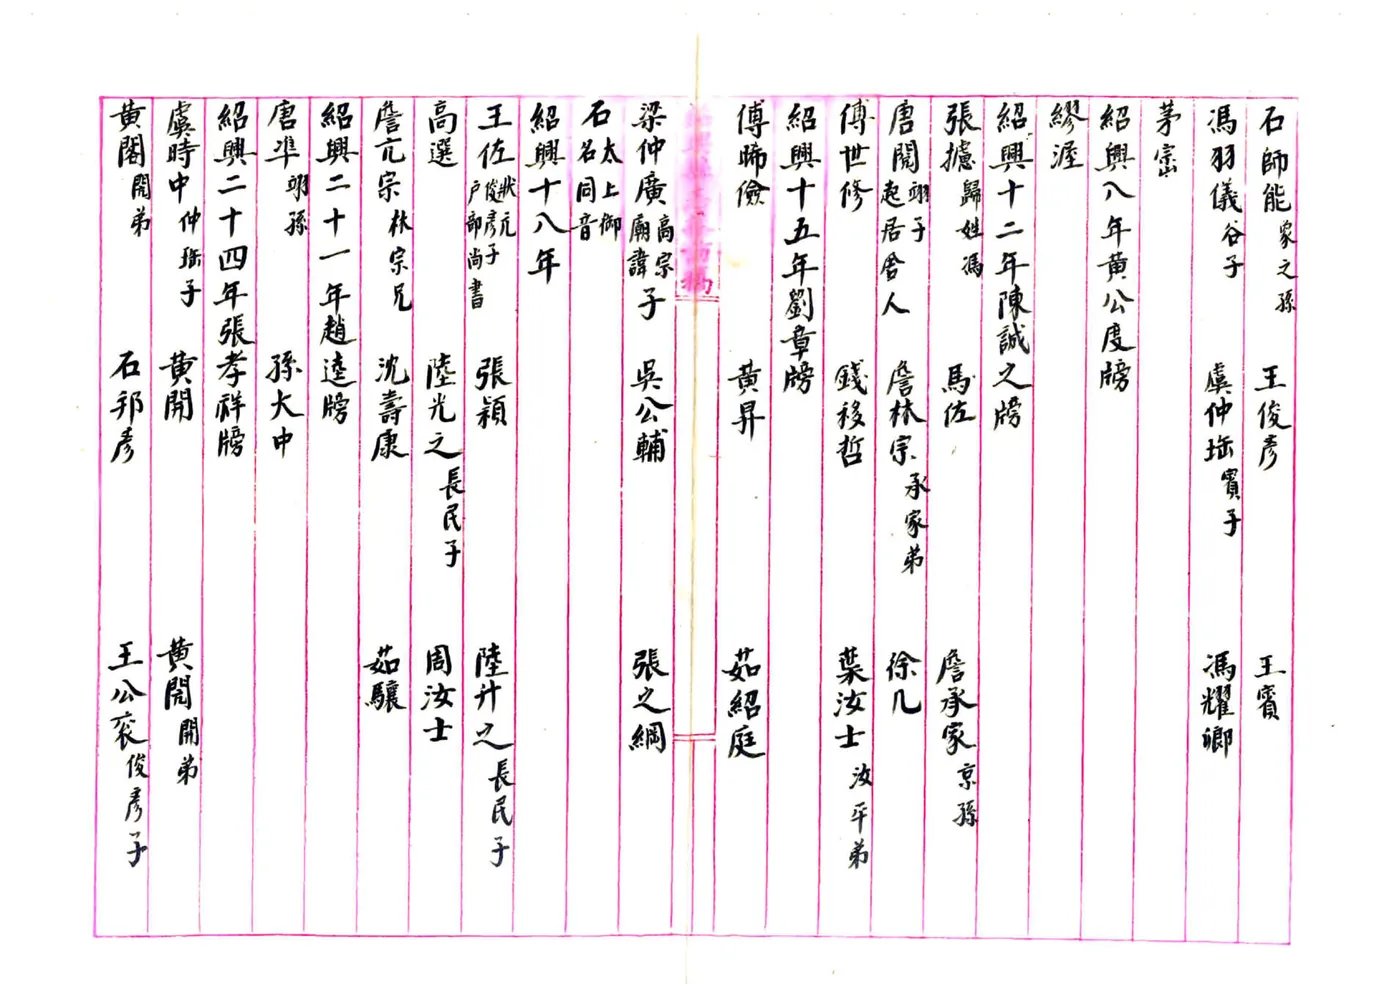 石師能象之孫 王俊彥 王賓
馮羽儀谷子 虞仲瑤賓子 馮耀卿
茅宗
紹興八年黃公度牓
繆涯
紹興十二年陳誠之牓
張摅歸姓馮 馬佐 詹承家京孫
唐閱翊子起居舍人 詹林宗承家弟 徐几
傅世修 錢移哲 葉汝士汝平弟
紹興十五年劉章牓
傅晞儉 黃昇 茹紹庭
梁仲廣高宗廟諱子 吳公輔 張之綱
石太上御名同音
紹興十八年
王佐狀元俊彥子戶部尚書 張穎 陸升之長民子
高選 陸光之長民子 周汝士
詹亢宗林宗兄 沈壽康 茹驤
紹興二十一年趙逵牓
唐準翊孫 孫大中
紹興二十四年張孝祥牓
虞時中仲瑤子 黃開 黃閌開弟
黃閣閌弟 石邦彥 王公袞俊彥子